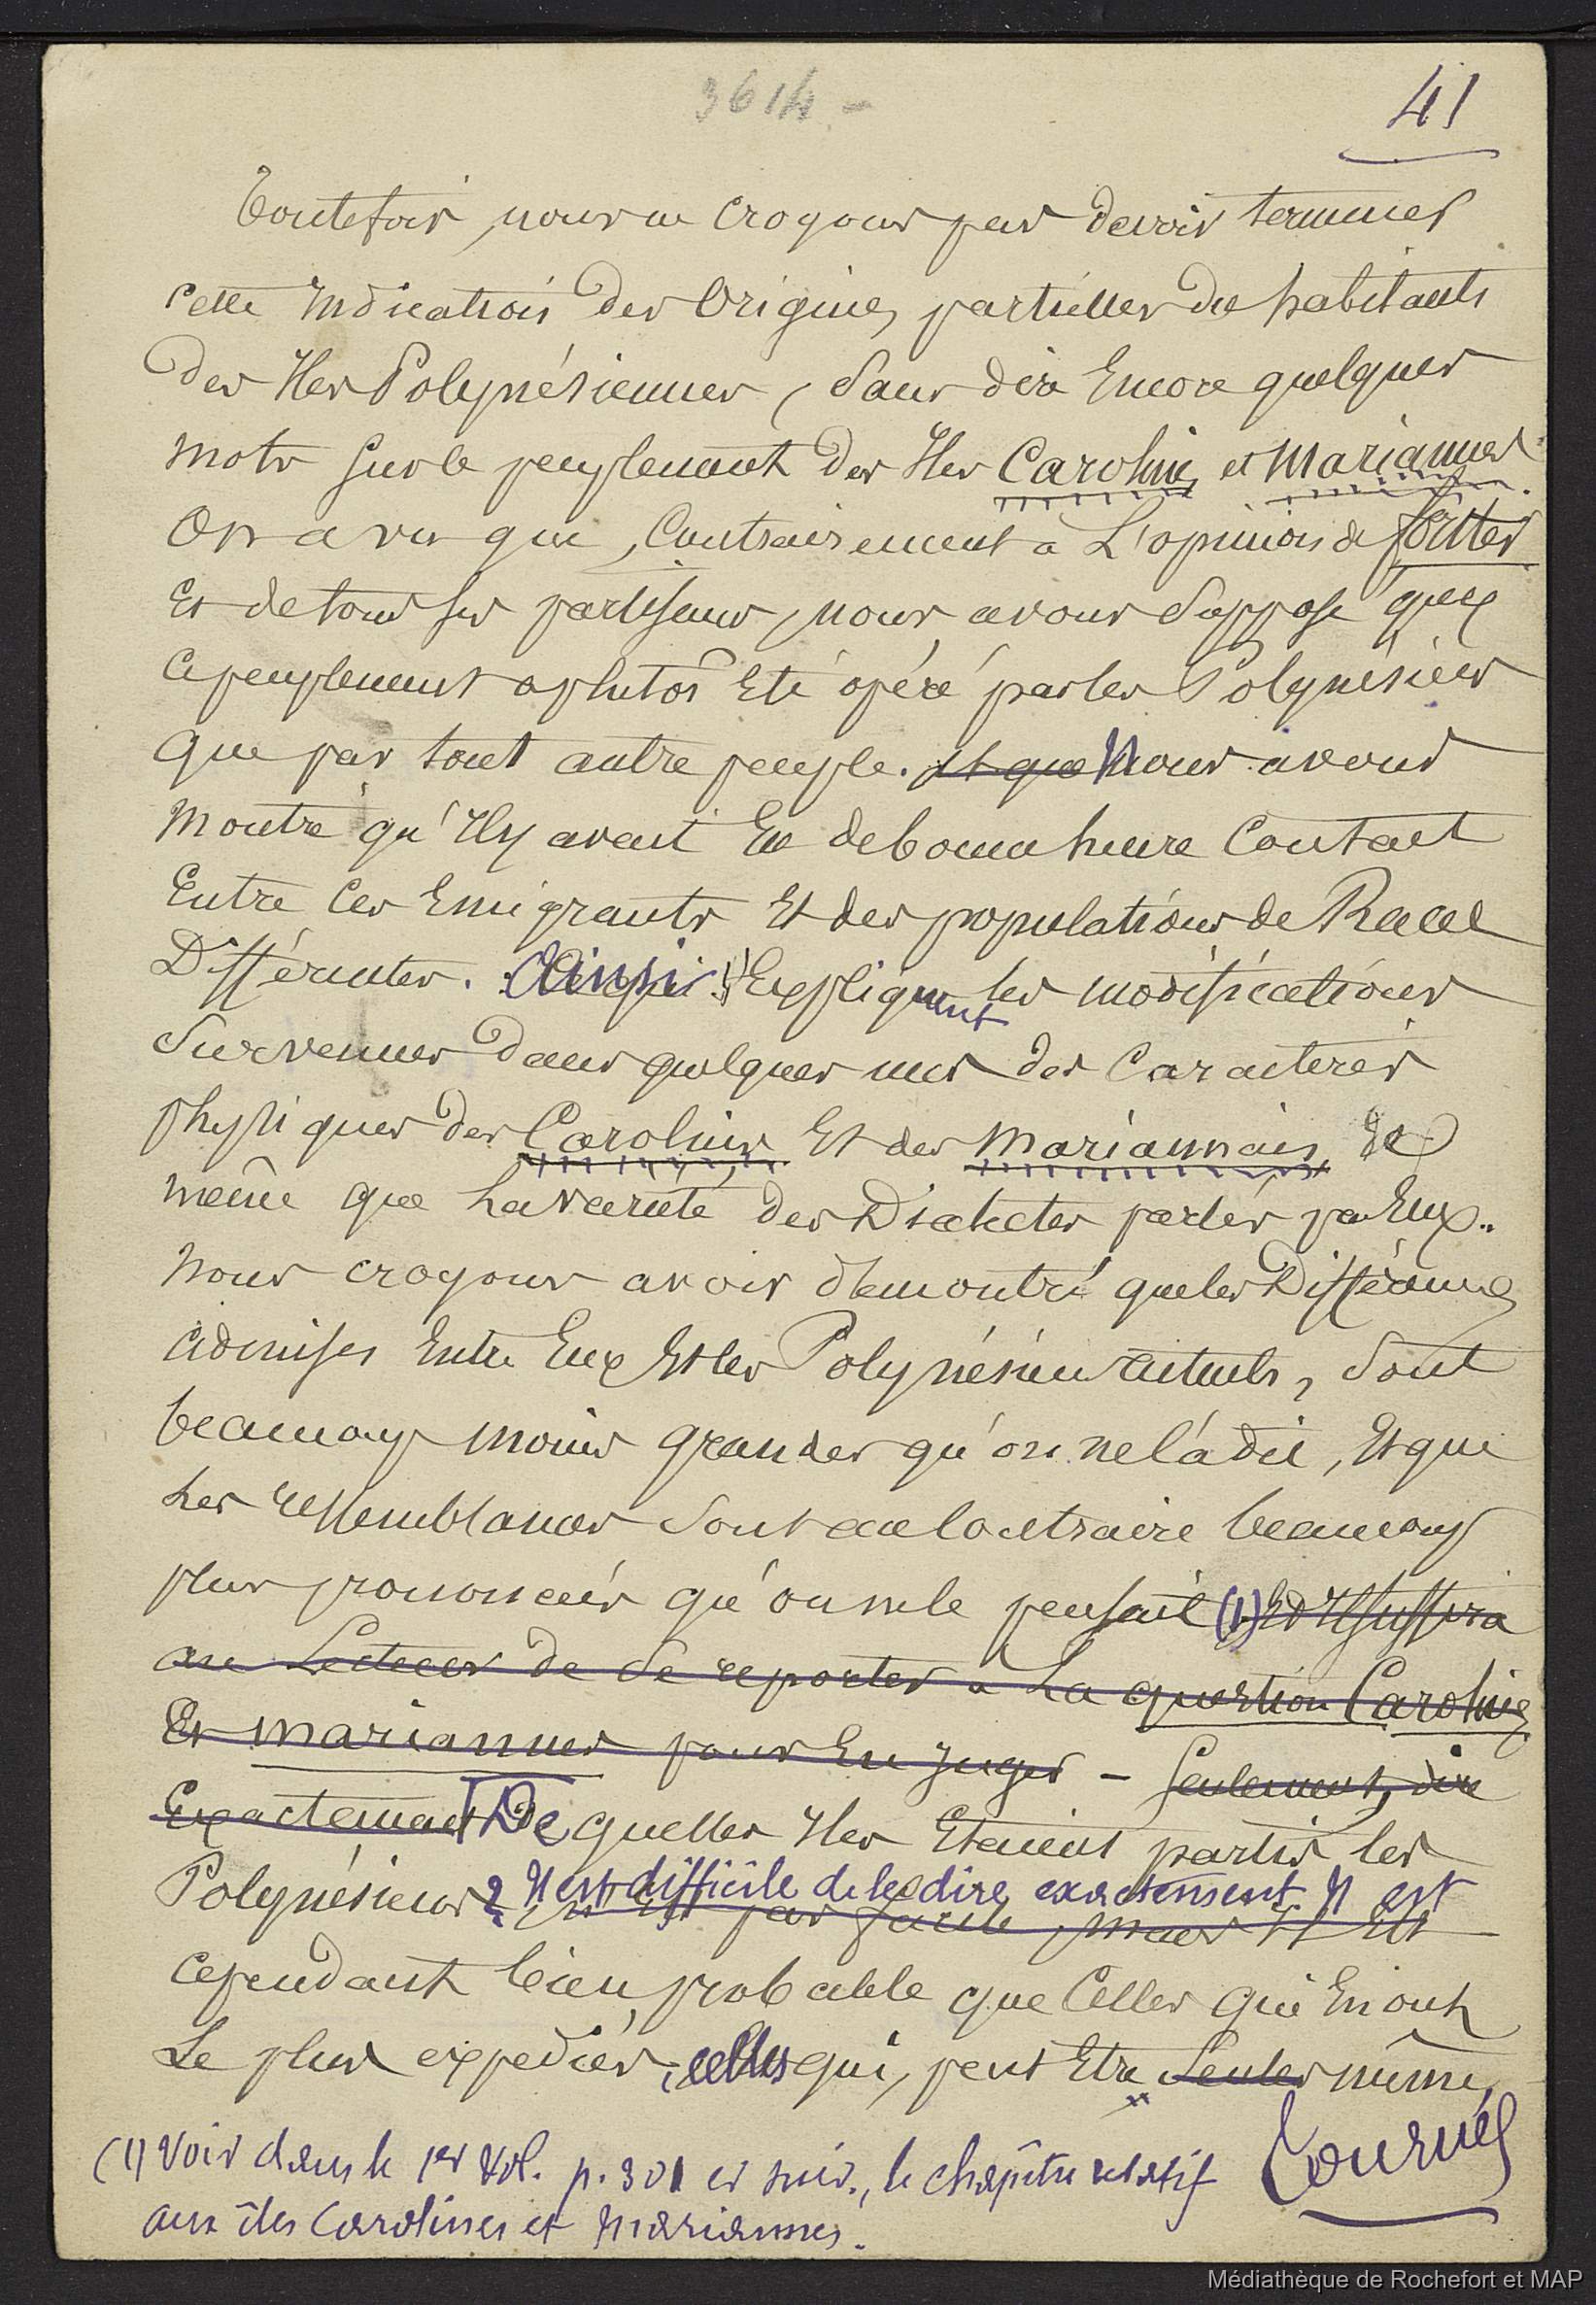 3614 -
41
Toutefois, nous ne croyons pas devoir terminer
cette indication des Origines partielles des habitants
des Iles Polynésiennes, sans dire Encore quelques
mots sur le peuplement des Iles Carolines et Mariannes.
On a vu que, Contrairement à L'opinion de
Et de tous ses partisans, nous avons Supposé que
ce peuplement a plutôt Eté opéré par les Polynésiens
que par tout autre peuple. Et que Nous avons
Montré qu'Il y avait Eu de bonne heure Contact
Entre Ces Emigrants Et des populations de Races
Différentes. Ainsi s'Expliquent les modifications
Survenues Dans quelques unes des Caractères
physiques des Carolins Et des Mariannais, de
même que La variété des Dialectes parlés par Eux.
Nous croyons avoir démontré que les Différences
admises Entre Eux Et les Polynésiens actuels, Sont
beaucoup moins grandes qu'on ne l'a dit, Et que
Les ressemblances Sont au Contraire beaucoup
plus prononcées qu'on ne le pensait (1) Et Il suffira
au Lecteur de Se reporter à La question Carolines
Et Mariannes pour En juger - Seulement, dire
Exactement De quelles Iles Etaient partis les
Polynésiens? Il est difficile de le dire exactement Il est
n'Est pas facile, mais Il Est
cependant bien probable que Celles qui En ont
Le plus expédiés, celles qui, peut Etre Seules même,
(1) Voir dans le 1er Vol. p. 301 et suiv., le chapitre relatif
aux îles Carolines et Mariannes.
Tournez
Médiathèque de Rochefort et MAP